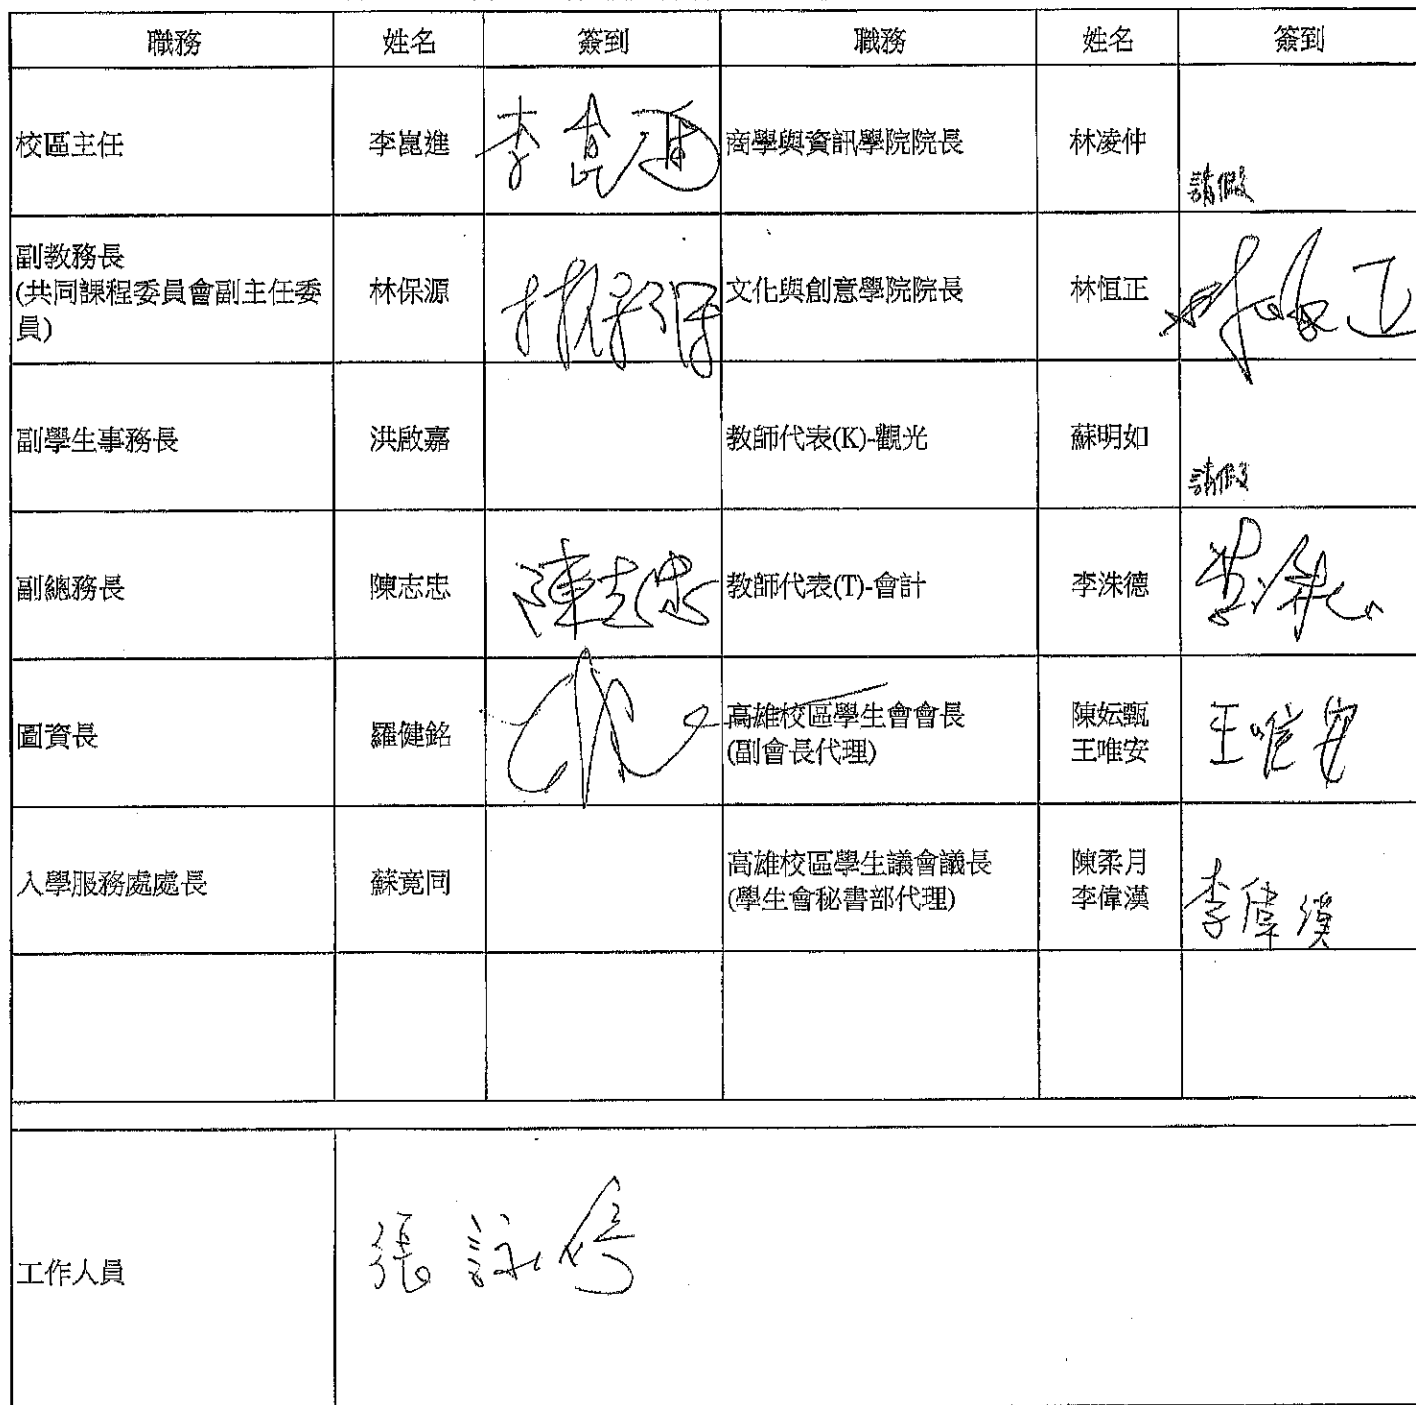 職務 姓名 簽到 職務 姓名 簽到
校區主任 李崑進 李崑進 商學與資訊學院院長 林凌仲 請假
副教務長
(共同課程委員會副主任委
員)
林保源 林保源 文化與創意學院院長 林恒正 林恒正
副學生事務長 洪啟嘉 教師代表(K)-觀光 蘇明如 請假
副總務長 陳志忠 陳志忠 教師代表(T)-會計 李洙德 李洙德
圖資長 羅健銘 高雄校區學生會會長
(副會長代理)
陳妘甄
王唯安
王唯安
入學服務處處長 蘇竞同 高雄校區學生議會議長
(學生會秘書部代理)
陳柔月
李偉漢
李偉漢
工作人員 張詠